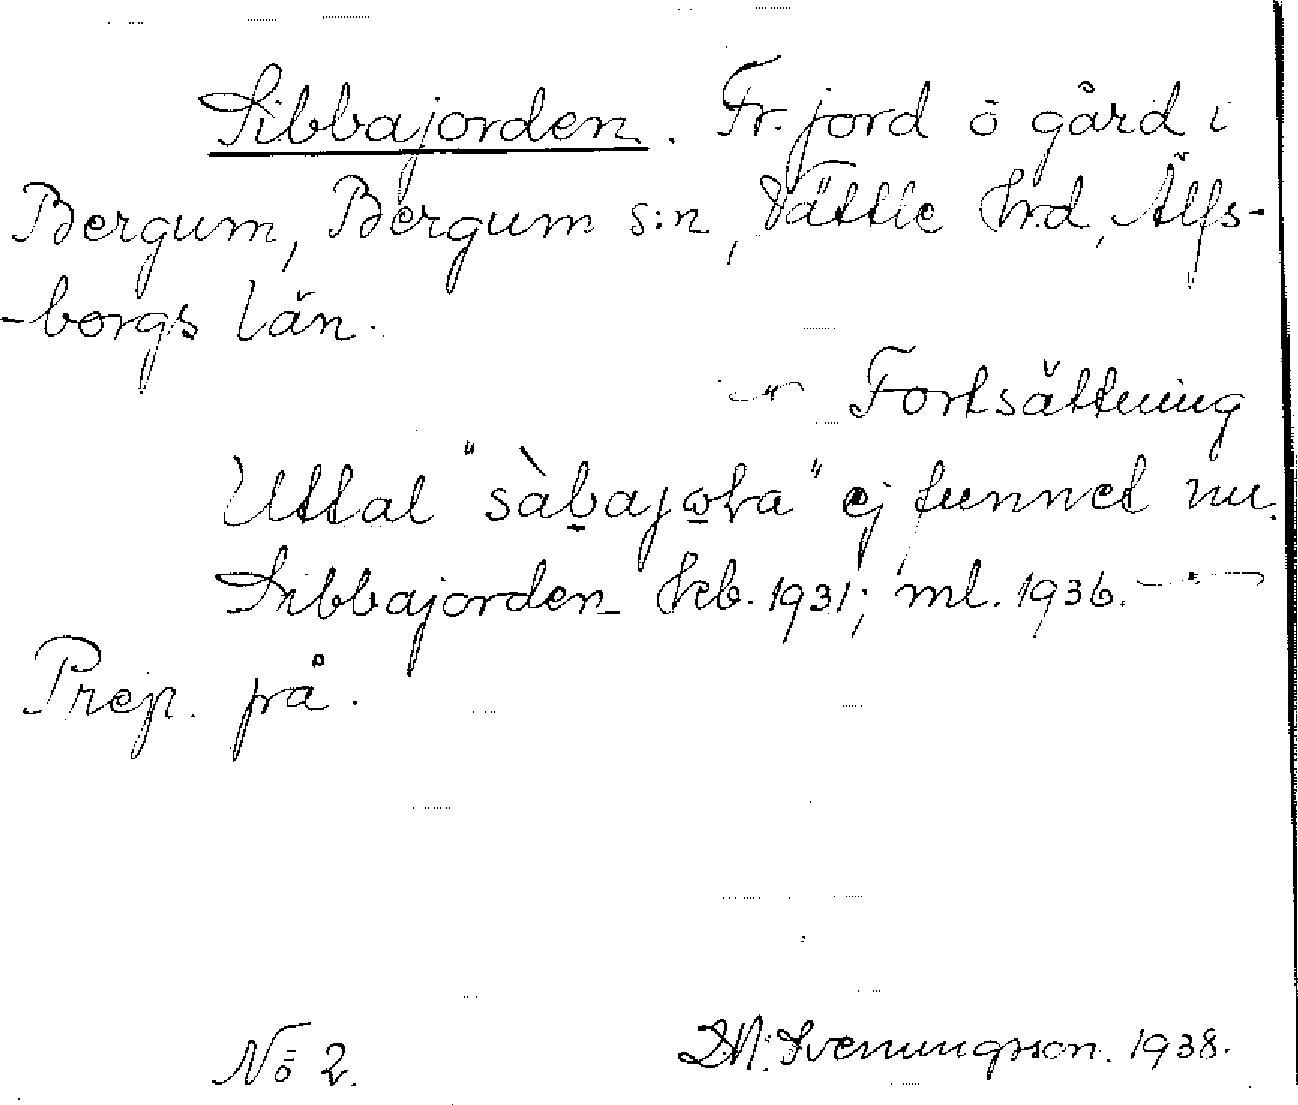 Sibbajorden. Fr. jord ō gård i
Bergum, Bergum s:n, Vättle Hrd, Älfs-
-borgs län.
-"- Fortsättning
Uttal "sàbajoʀa" ej funnet nu.
Sibbajorden Jeb. 1931; ml. 1936. -"-
Prep. på.
Nō 2. D.N. Svenungsson. 1938.